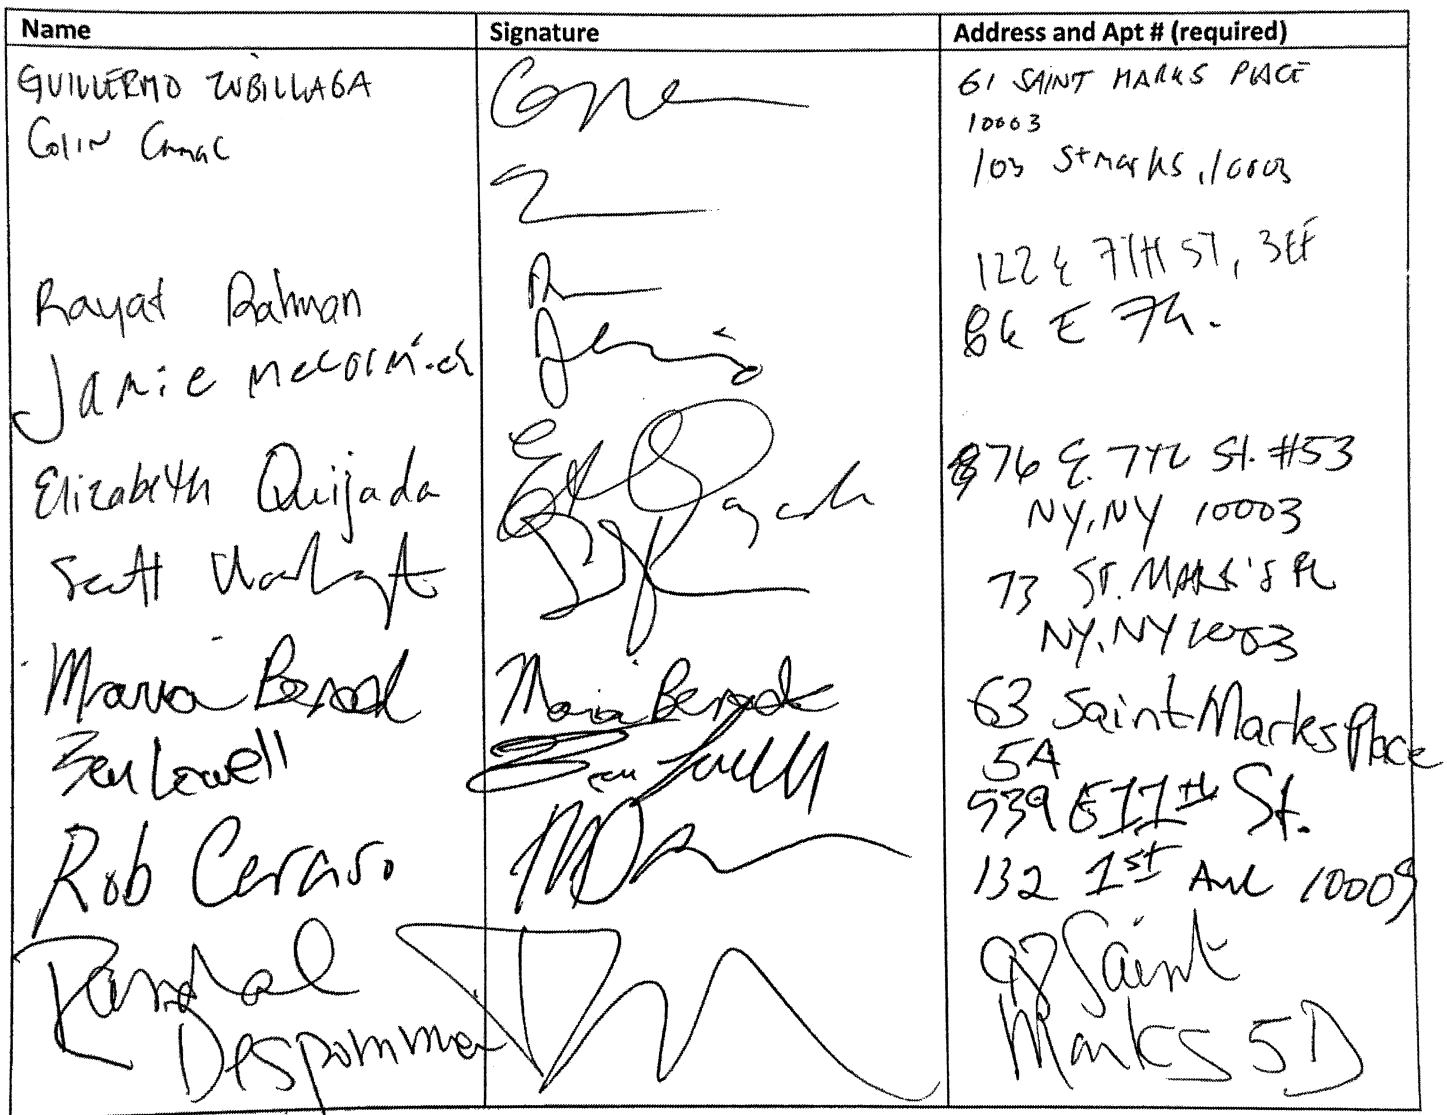 Name Signature Address and Apt # (required)
GUILLERMO ZUBILLAGA 61 SAINT MARKS PLACE
10003
Colin Camac 103 St marks, 10003
Rayat Rahman 122 E 7TH ST, 3EF
Jamie McCormick 86 E 7th.
Elizabeth Quijada 76 E. 7th St. #53
NY, NY 10003
Scott 73 ST. MARK'S PL
NY, NY 10003
Maria 63 Saint Marks Place
Maria
5A
Ben Lowell Ben Lowell 539 E 11th St.
Rob Ceraso 132 1st Ave 10009
Randal 97 Saint
Marks 5D